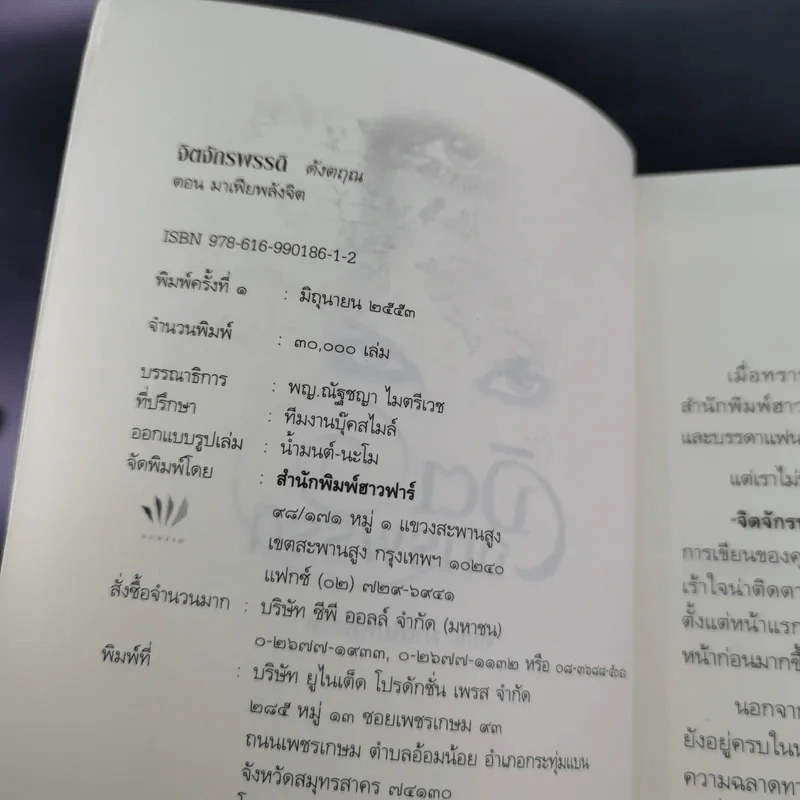 จิตจักรพรรดิ ดังตฤณ
ตอน มาเฟียพลังจิต
ISBN 978-616-990186-1-2
พิมพ์ครั้งที่ ๑ : มิถุนายน ๒๕๕๓
จำนวนพิมพ์ : ๓๐,๐๐๐ เล่ม
บรรณาธิการ : พญ.ณัฐชญา ไมตรีเวช
ที่ปรึกษา : ทีมงานบุ๊คสไมล์
ออกแบบรูปเล่ม : น้ำมนต์-นะโม
จัดพิมพ์โดย : สำนักพิมพ์ฮาวฟาร์
๙๘/๑๗๑ หมู่ ๑ แขวงสะพานสูง
เขตสะพานสูง กรุงเทพฯ ๑๐๒๔๐
แฟกซ์ (๐๒) ๗๒๙-๖๙๔๑
สั่งซื้อจำนวนมาก : บริษัท ซีพี ออลล์ จำกัด (มหาชน)
๐-๒๖๗๗-๑๙๓๓, ๐-๒๖๗๗-๑๑๓๒ หรือ
พิมพ์ที่ : บริษัท ยูไนเต็ด โปรดักชั่น เพรส จำกัด
๒๘๕ หมู่ ๑๓ ซอยเพชรเกษม ๙๓
ถนนเพชรเกษม ตำบลอ้อมน้อย อำเภอกระทุ่มแบน
จังหวัดสมุทรสาคร ๗๔๑๓๐
เมื่อทราบ
สำนักพิมพ์ฮาว
และบรรดาแฟน
แต่เราไม่
การเขียนของคุ
เร้าใจน่าติดตา
ตั้งแต่หน้าแรก
หน้าก่อนมากขึ้
นอกจาก
ยังอยู่ครบในน
ความฉลาดทา